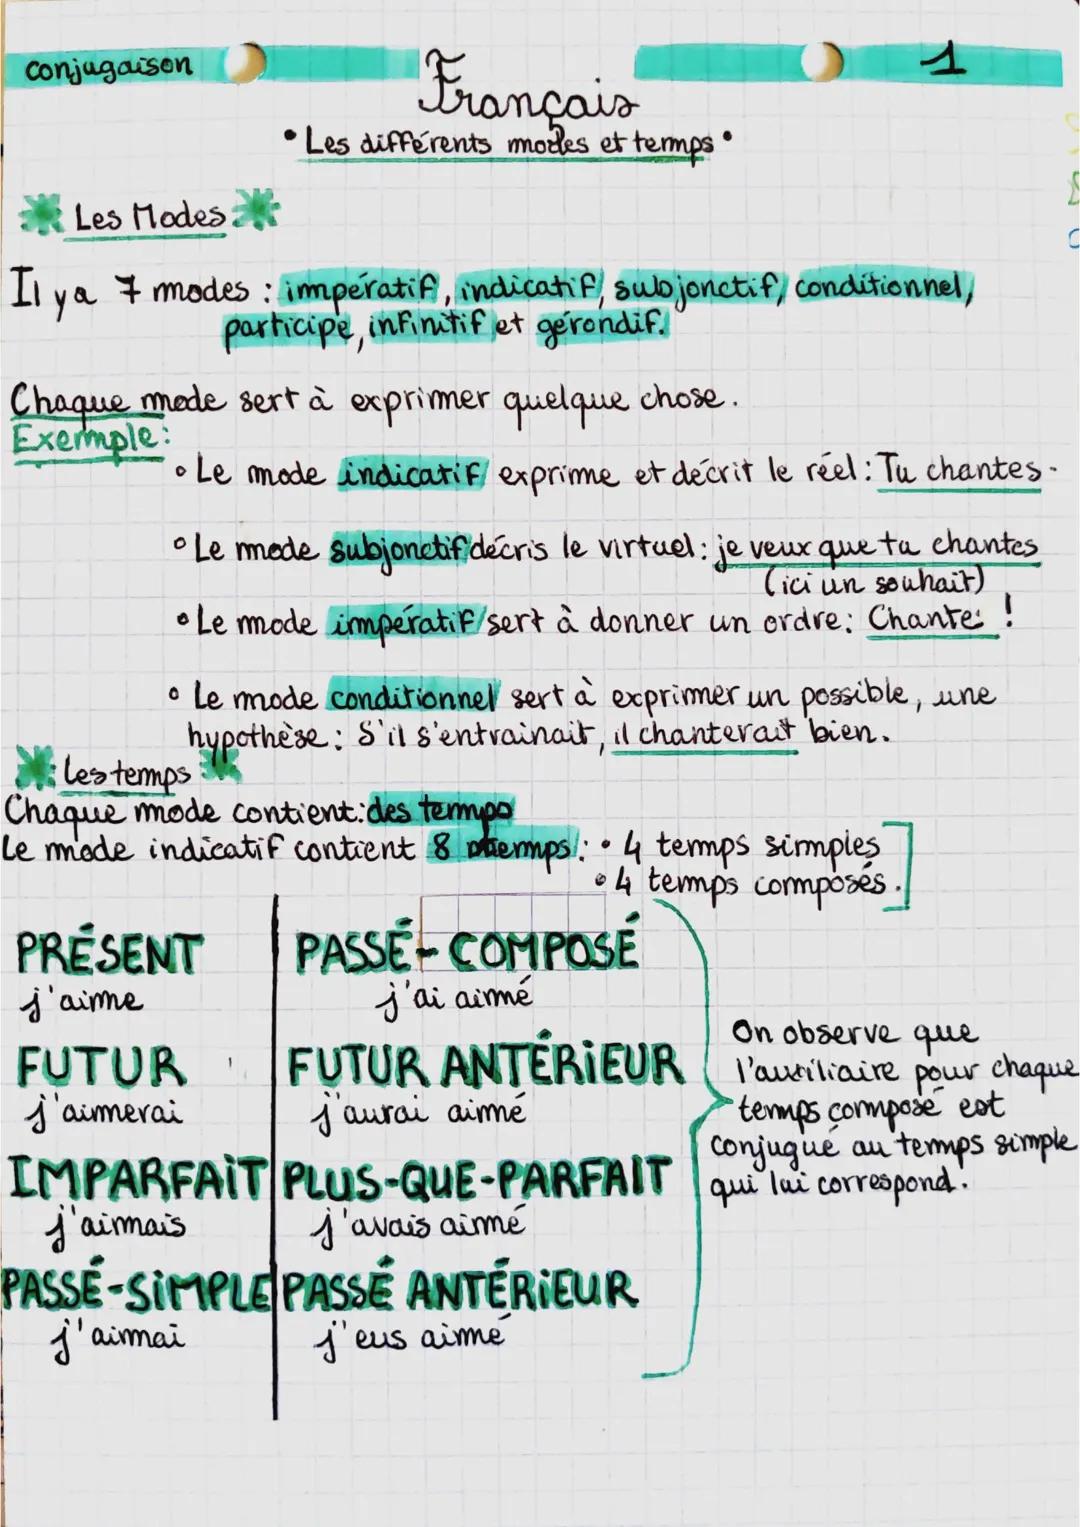 conjugaison
1
Français
• Les différents modes et temps •
Les Modes
Il y a 7 modes : impératif, indicatif, subjonctif, conditionnel,
participe, infinitif et gérondif.
Chaque mode sert à exprimer quelque chose.
Exemple:
• Le mode indicatif exprime et décrit le réel: Tu chantes.
• Le mode subjonctif décris le virtuel: je veux que tu chantes
(ici un souhait)
• Le mode impératif sert à donner un ordre: Chante !
• Le mode conditionnel sert à exprimer un possible, une
hypothèse: S'il s'entrainait, il chanterait bien.
Les temps
Chaque mode contient: des temps
Le mode indicatif contient 8 temps: • 4 temps simples
• 4 temps composés.
PRÉSENT PASSÉ-COMPOSÉ
j'aime j'ai aimé
FUTUR FUTUR ANTÉRiEUR
j'aimerai j'aurai aimé
IMPARFAiT PLUS-QUE-PARFAIT
j'aimais j'avais aimé
PASSÉ-SiMPLE PASSÉ ANTÉRiEUR
j'aimai j'eus aimé
On observe que
l'auxiliaire pour chaque
temps composé est
conjugué au temps simple
qui lui correspond.